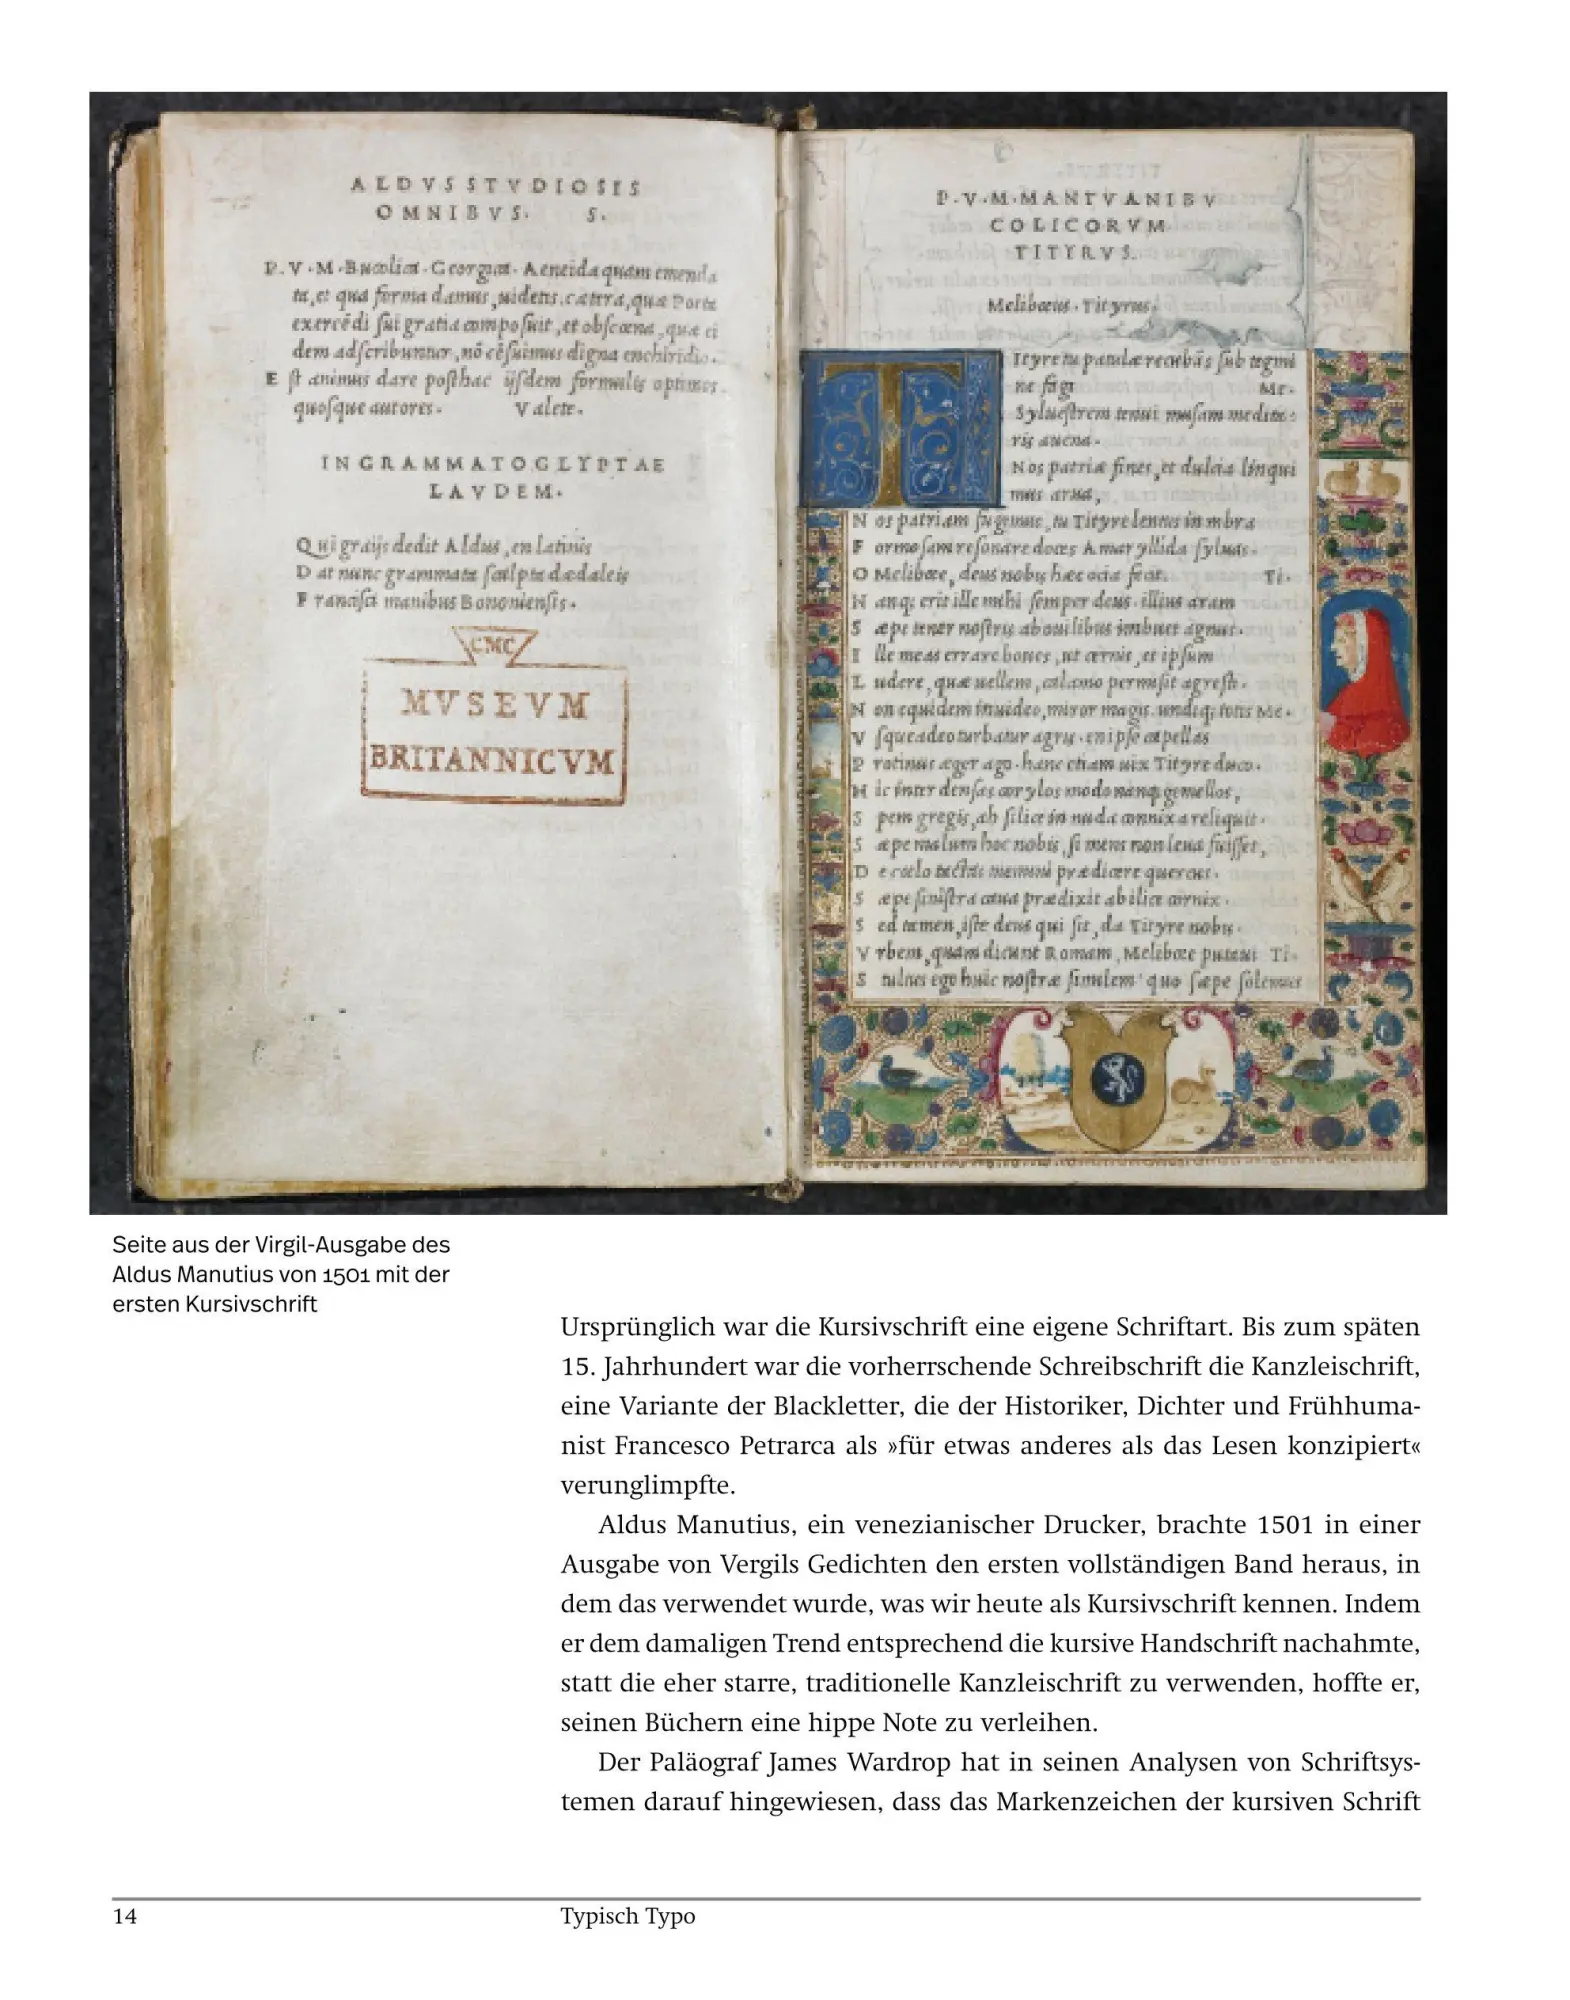 ALDVS STVDIOSIS
OMNIBVS. S.
P.V.M. Bucolica. Georgica. Aeneida quam emenda
ta, et qua forma damus, uidetis. cætera, quæ Poeta
exercēdi sui gratia composuit, et obscœna, quæ ei
dem adscribuntur, nō cēsuimus digna enchiridio.
Est animus dare posthac ijsdem formulis optimos
quosque autores. Valete.
IN GRAMMATOGLYPTAE
LAVDEM.
Qui graijs dedit Aldus, en latinis
Dat nunc grammata scalpta dædaleis
Francisci manibus Bononiensis.
CMC
MVSEVM
BRITANNICVM
P.V.M. MANTVANI BV
COLICORVM
TITYRVS.
Melibœus. Tityrus.
Tityre tu patulæ recubās sub tegmi
ne fagi Me.
Syluestrem tenui musam medita
ris auena.
Nos patriæ fines, et dulcia linqui
mus arua,
Nos patriam fugimus, tu Tityre lentus in umbra
Formosam resonare doces Amaryllida syluas.
O Melibœe, deus nobis hæc ocia fecit. Ti.
Nanq; erit ille mihi semper deus. illius aram
Sæpe tener nostris ab ouilibus imbuet agnus.
Ille meas errare boues, ut cernis, et ipsum
Ludere, quæ uellem, calamo permisit agresti.
Non equidem inuideo, miror magis. undiq; totis Me.
Vsque adeo turbatur agris. en ipse capellas
Protinus æger ago. hanc etiam uix Tityre duco.
Hic inter densas corylos modo nanq; gemellos,
Spem gregis, ah silice in nuda connixa reliquit.
Sæpe malum hoc nobis, si mens non leua fuisset,
De cœlo tactas memini prædicere quercus.
Sæpe sinistra caua prædixit ab ilice cornix.
Sed tamen, iste deus qui sit, da Tityre nobis.
Vrbem, quam dicunt Romam, Melibœe putaui Ti.
Stultus ego huic nostræ similem, quo sæpe solemus
Seite aus der Virgil-Ausgabe des
Aldus Manutius von 1501 mit der
ersten Kursivschrift
Ursprünglich war die Kursivschrift eine eigene Schriftart. Bis zum späten
15. Jahrhundert war die vorherrschende Schreibschrift die Kanzleischrift,
eine Variante der Blackletter, die der Historiker, Dichter und Frühhuma-
nist Francesco Petrarca als »für etwas anderes als das Lesen konzipiert«
verunglimpfte.
Aldus Manutius, ein venezianischer Drucker, brachte 1501 in einer
Ausgabe von Vergils Gedichten den ersten vollständigen Band heraus, in
dem das verwendet wurde, was wir heute als Kursivschrift kennen. Indem
er dem damaligen Trend entsprechend die kursive Handschrift nachahmte,
statt die eher starre, traditionelle Kanzleischrift zu verwenden, hoffte er,
seinen Büchern eine hippe Note zu verleihen.
Der Paläograf James Wardrop hat in seinen Analysen von Schriftsys-
temen darauf hingewiesen, dass das Markenzeichen der kursiven Schrift
14
Typisch Typo